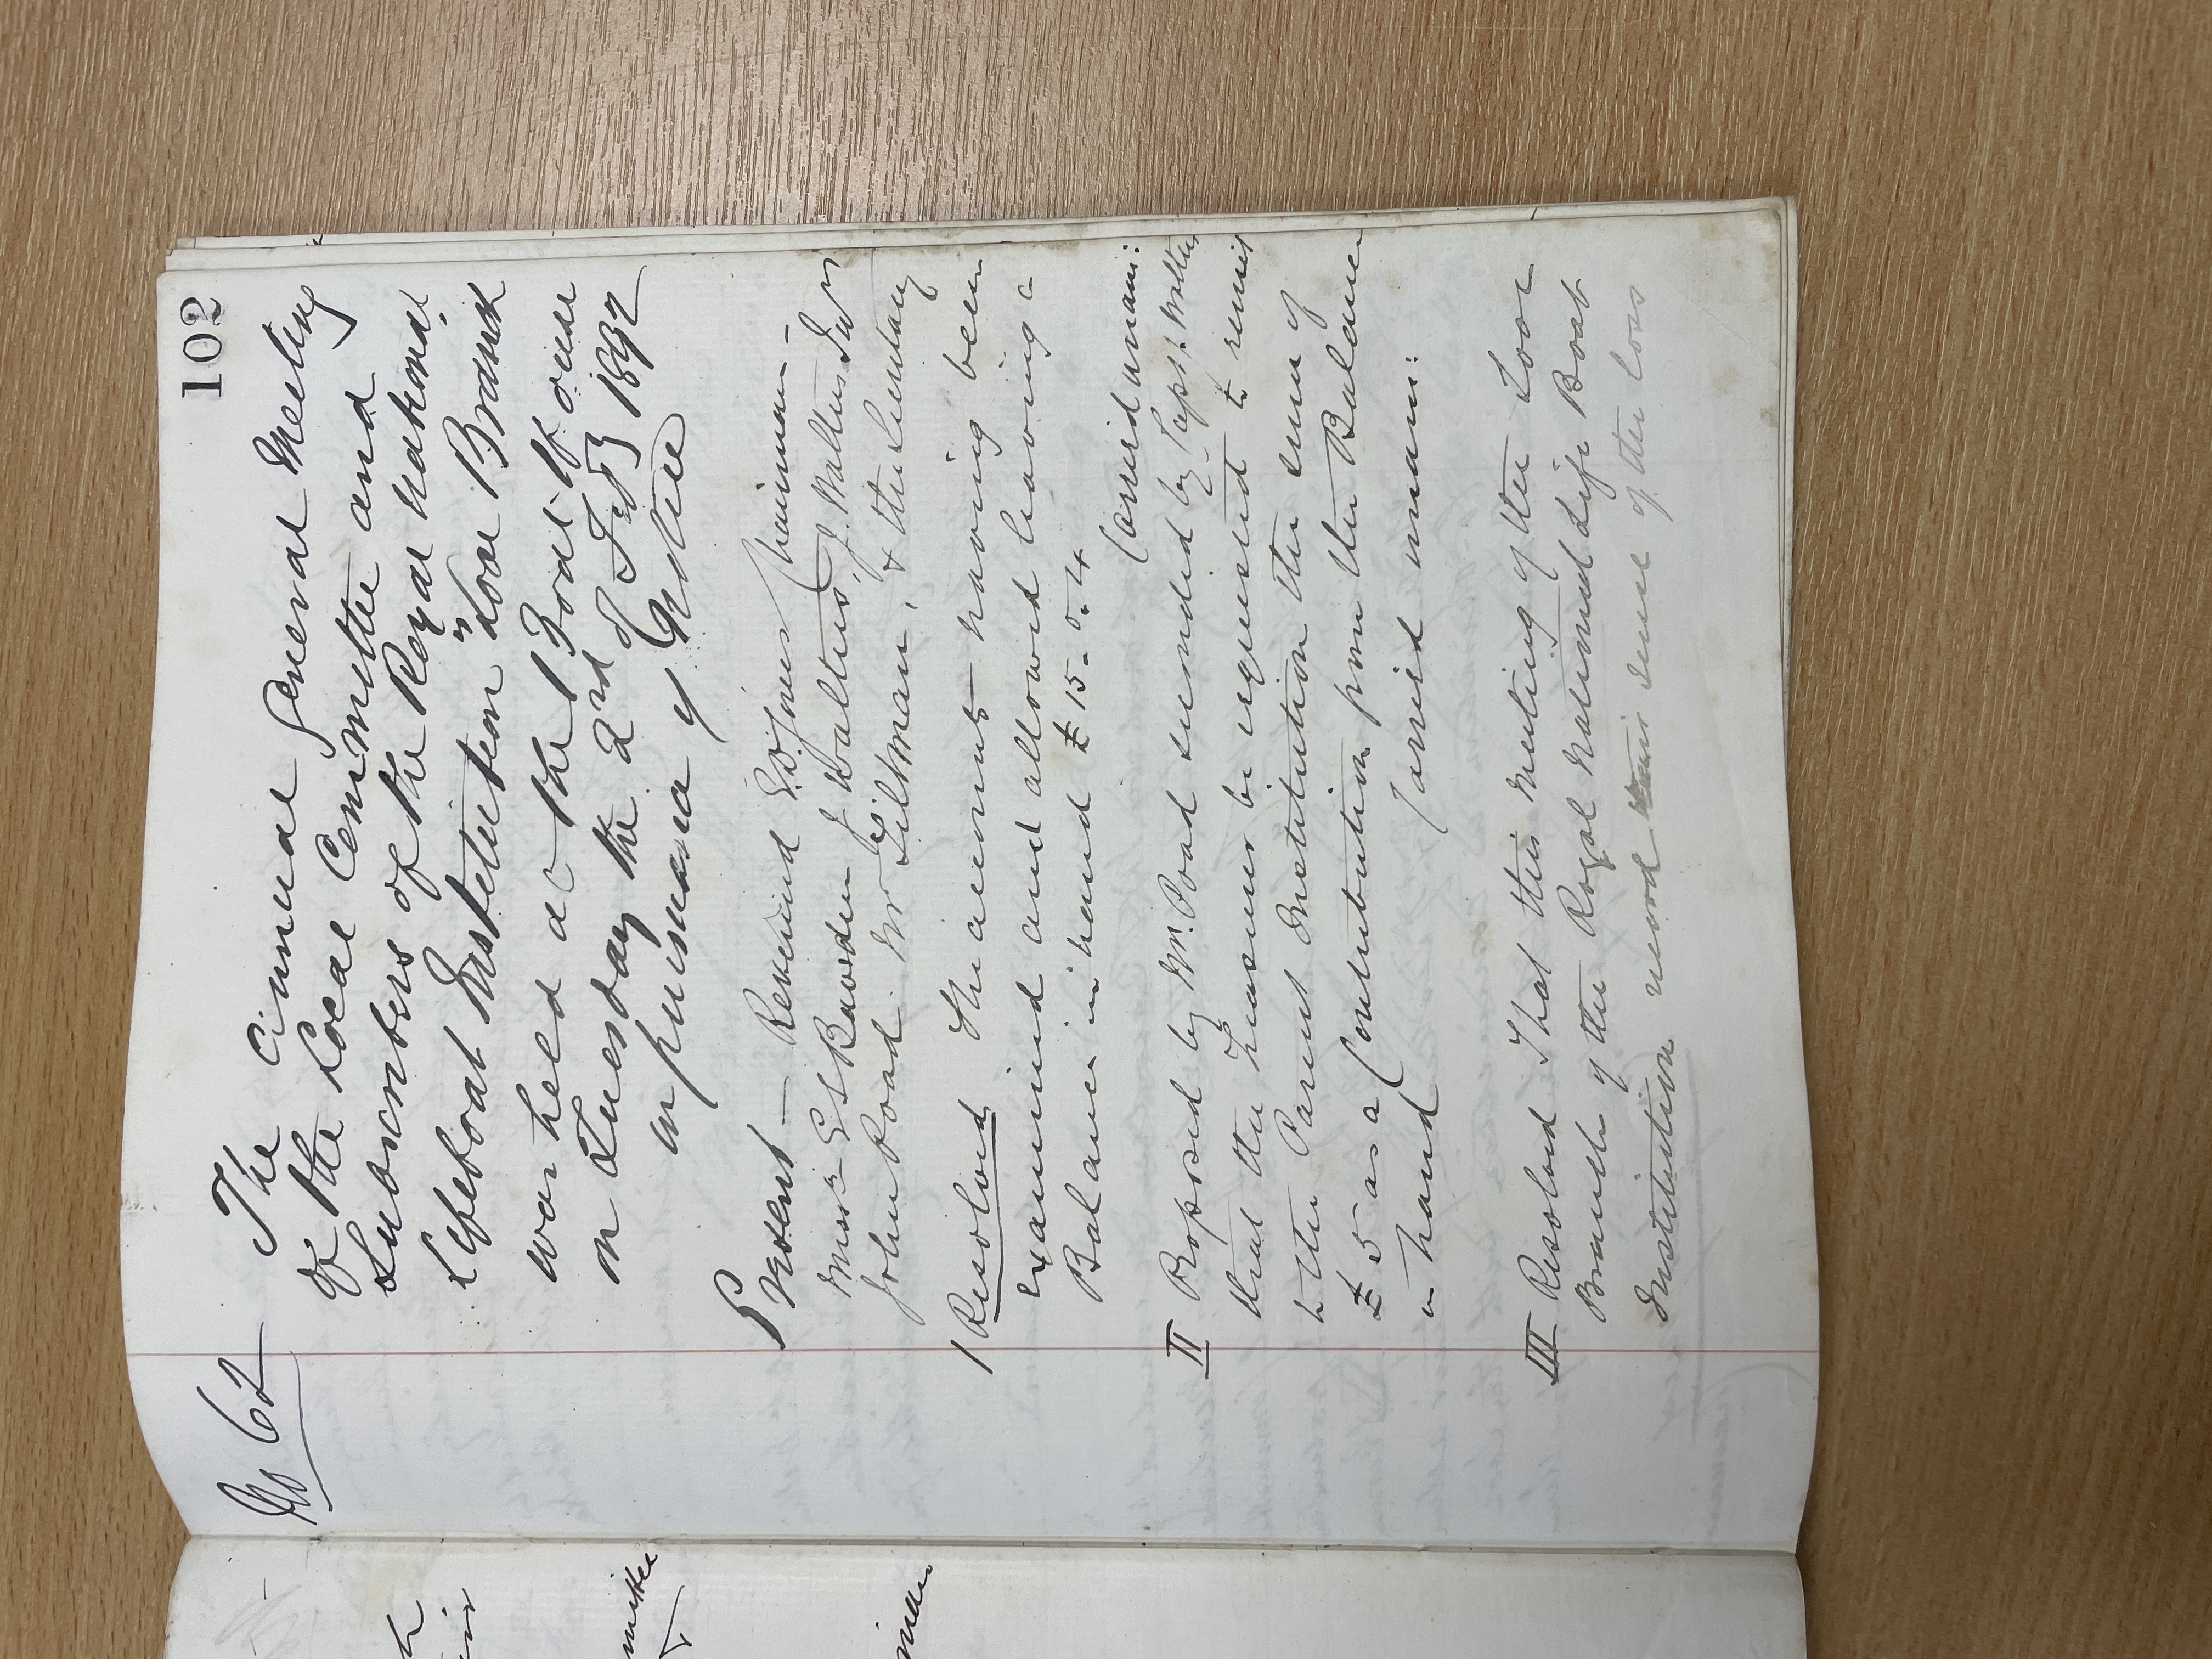 102
No 62
The Annual General Meeting
of the Local Committee and
Subscribers of the Royal National
Lifeboat Institution "Looe Branch
was held at the Boat House
on Tuesday the 2nd of Feb 1892
in pursuance of Notice
Present — Reverend Chairman —
Messrs E S Bawden J Walters J. Walters Junr
John Poad Mr & the Secretary
1 Resolved the accounts having been
examined and allowed leaving a
Balance in hand £15-0.4
Carried unani:
II Proposed by Mr. Poad seconded by Capt. Walters
that the Treasurer be requested to remit
to the Parent Institution the sum of
£5 as a Contribution from the Balance
in hand
Carried unani:
III Resolved That this Meeting of the Looe
Branch of the Royal National Life Boat
Institution record their sense of the loss